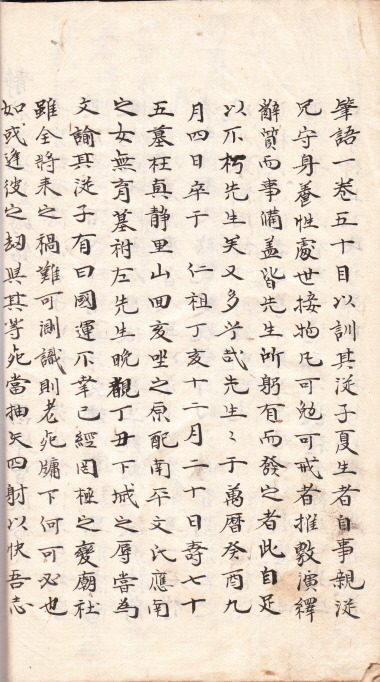 肇語一卷五十目以訓其從子夏生者自事親從
兄守身養性處世接物凡可勉可戒者推敷演繹
辭質而事滿盖皆先生所躬有而發之者此自足
以不朽先生奚又多㢤先生〻于萬曆癸酉九
月四日卒于 仁祖丁亥十二月二十日壽七十
五墓在真静里山回亥坐之原配南平文氏應南
之女無育墓祔左先生晩覩丁丑下城之辱嘗為
文諭其從子有曰國運不幸已經罔極之變廟社
雖全將来之禍難可測識則老死牖下何可必也
如或逢彼之刼與其等死當抽矢四射以快吾志